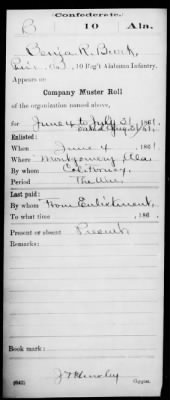 Confederate.
B 10 Ala.
Benja R. Brock
Co. B, 10 Reg't Alabama Infantry.
Appears on
Company Muster Roll
of the organization named above,
for June 4 to July 31, 1861.
dated Aug 31/61.
Enlisted:
When June 4, 1861.
Where Montgomery Ala.
By whom
Period The War
Last paid:
By whom From Enlistment,
To what time , 186 .
Present or absent Present
Remarks:
Book mark:
(642) Copyist.